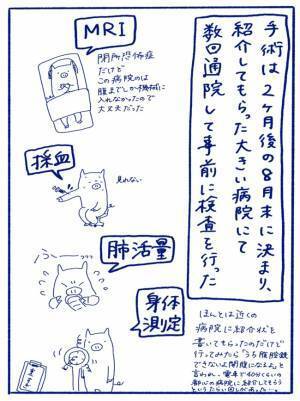 手術は2ヶ月後の8月末に決まり、
紹介してもらった大きい病院にて
数回通院して事前に検査を行った
MRI
閉所恐怖症
だけど
この病院のは
腹までしか機械に
入れなかったので
大丈夫だった
採血
見れない
肺活量
ふぅー
身体
測定
ほんとは近くの
病院に紹介状を
書いてもらったのだけど
行ってみたら「うち腹腔鏡
できないよ開腹になるよ」と
言われ、電車で40分くらいの
都心の病院に紹介してもらう